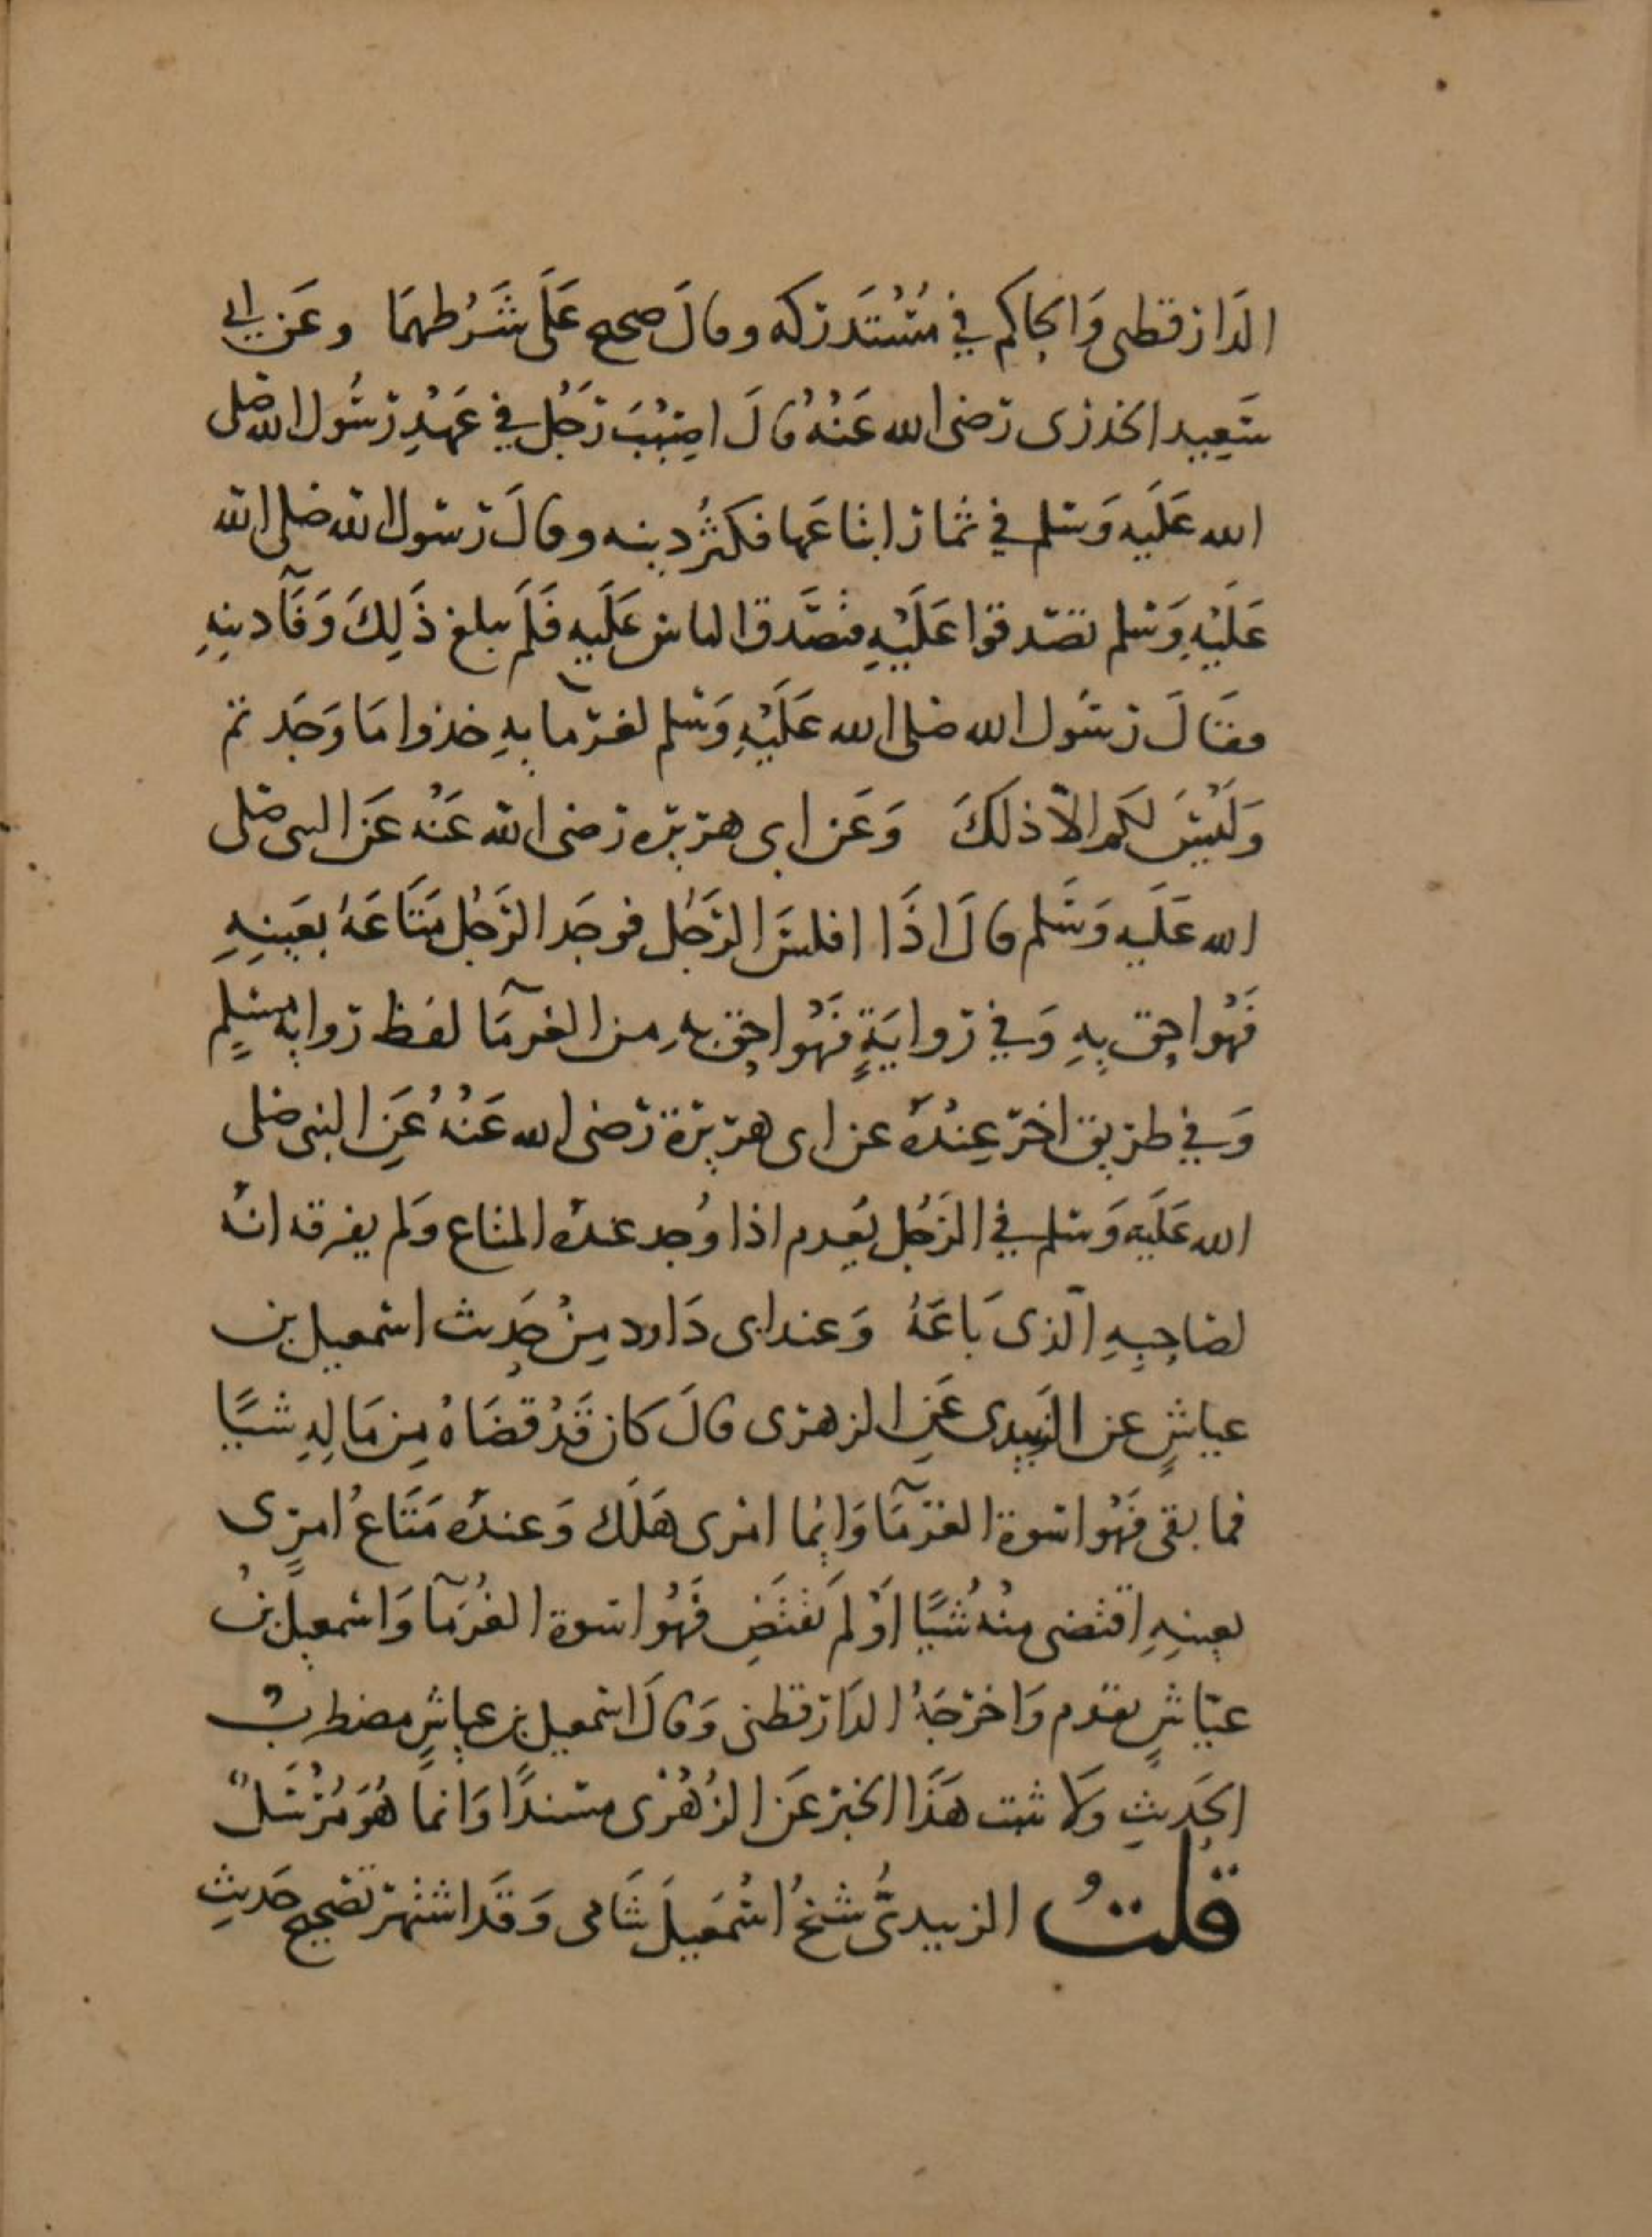 الدَارقطنى وَالحاكم في مُسْتَدركه وقالَ صحيح عَلَى شَرْطهمَا وعَن ابي
سَعِيد الخدرى رضى الله عَنْهُ قالَ اصِيْبَ رَجُل في عَهْدِ رسُول الله صلى
الله عَلَيه وَسلم في ثمار ابتاعَها فكثُر دينه وقالَ رسول الله صلى الله
عَلَيْهِ وَسَلم تصَدقوا عَلَيْهِ فتصَّدق الناس عَلَيه فَلَم يبلغ ذَلِكَ وَفَآ دينِهِ
فقَالَ رسُول الله صلى الله عَلَيْهِ وَسَلم لغرمايهِ خذوا مَا وَجَدتم
وَلَيْسَ لكم الاّ ذلكَ وَعَن ابى هريره رضى الله عَنْه عَن النبى صَلى
الله عَلَيه وَسَلم قالَ اذَا افلسَ الرَجُل فوجَد الرَجُل مَتَاعَهُ بعَينِهِ
فَهُو احق بِهِ وَفي روايَةٍ فَهُو احق بهِ مِن الغرمَآ لفظ رواية مسْلِمٍ
وَفي طريق اخَر عِنْدَهُ عن ابى هريرة رَضى الله عَنْهُ عَنِ النبى صَلى
الله عَلَيه وَسلم في الرَجُل يُعدم اذا وُجد عندَهُ المتاع وَلم يفرقه انه
لصَاحِبِهِ الّذى بَاعَهُ وَعند ابى دَاود مِنْ حَدِيث اسمعيل بن
عياشٍ عن الزبيدى عَنِ الزهرى قالَ كان قَدْ قضَاهُ مِن مَالِهِ شيًا
فما بقى فَهُو اسوة الغرمَآ وَايما امرى هَلَك وَعندَهُ مَتَاعُ امرٍى
بعينِهِ اقتضى مِنْهُ شيًا اَوْ لم يَقتَضِ فَهُو اسوة الغُرَمآ وَاسْمعيل بنُ
عيّاشٍ تقدم وَاخرجَهُ الدَارقطنى وَقالَ اسمعيل بن عياشٍ مضطربُ
الحَدِيثِ وَلا يثبت هَذَا الخبر عَن الزُهْرْى مسندًا وَانما هُوَ مُرْسَلٌ
قلتُ الزبيدىُّ شيخُ اسْمَعيلَ شَامى وَقَد اشتهر تصحيح حَديثِ